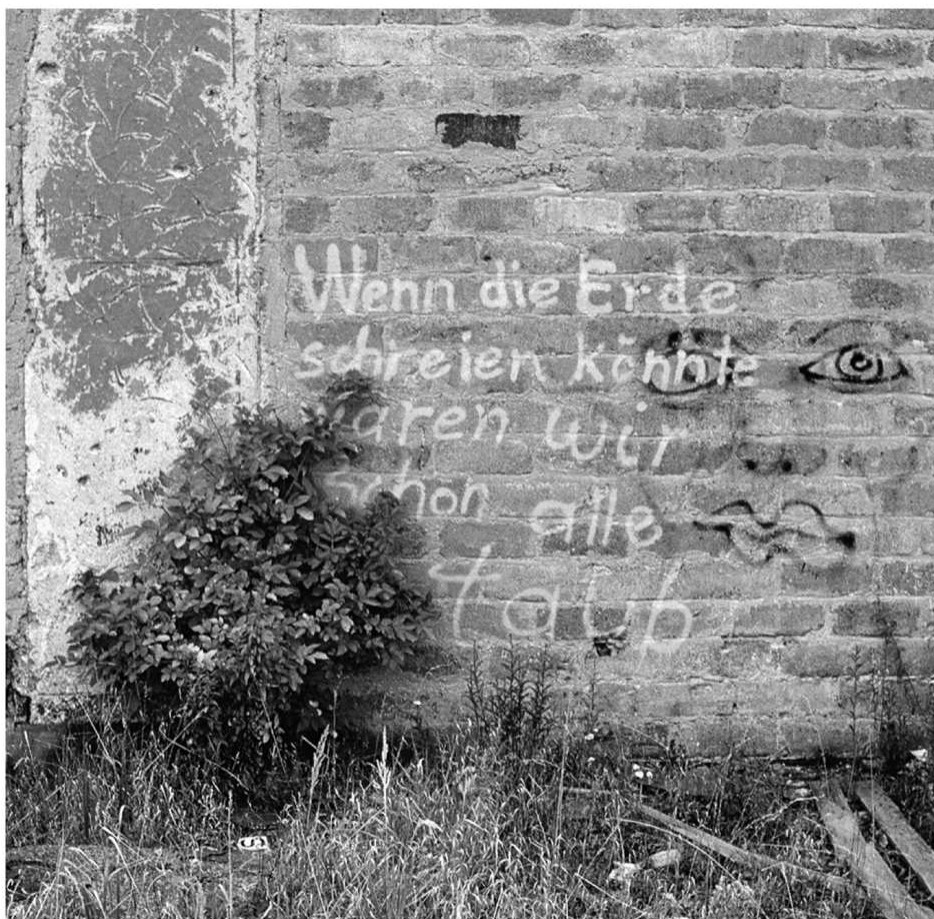 Wenn die Erde
schreien könnte
wären wir
schon alle
taub